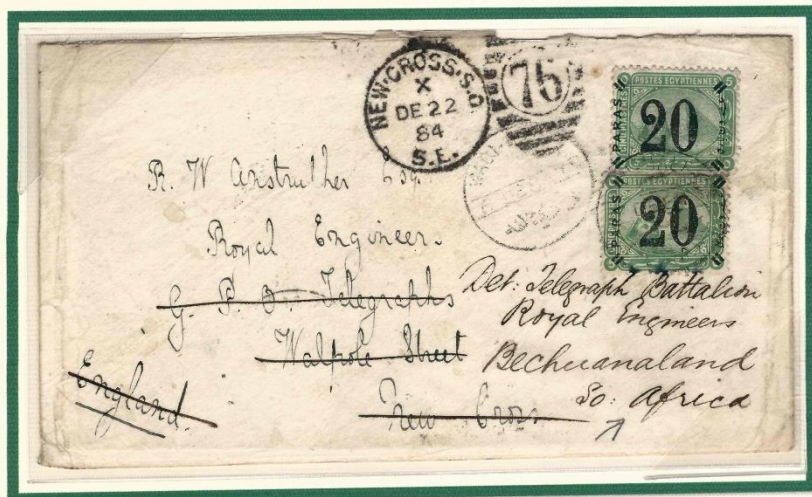 NEW-CROSS.S.O
X
DE 22
84
S.E.
75
POSTES EGYPTIENNES
PARAS
20
POSTES EGYPTIENNES
20
R. W Anstruther Esq.
Royal Engineers
G. P. O. Telegraphs
Walpole Street
New Cross
England
Det: Telegraph Battalion
Royal Engineers
Bechuanaland
So: Africa